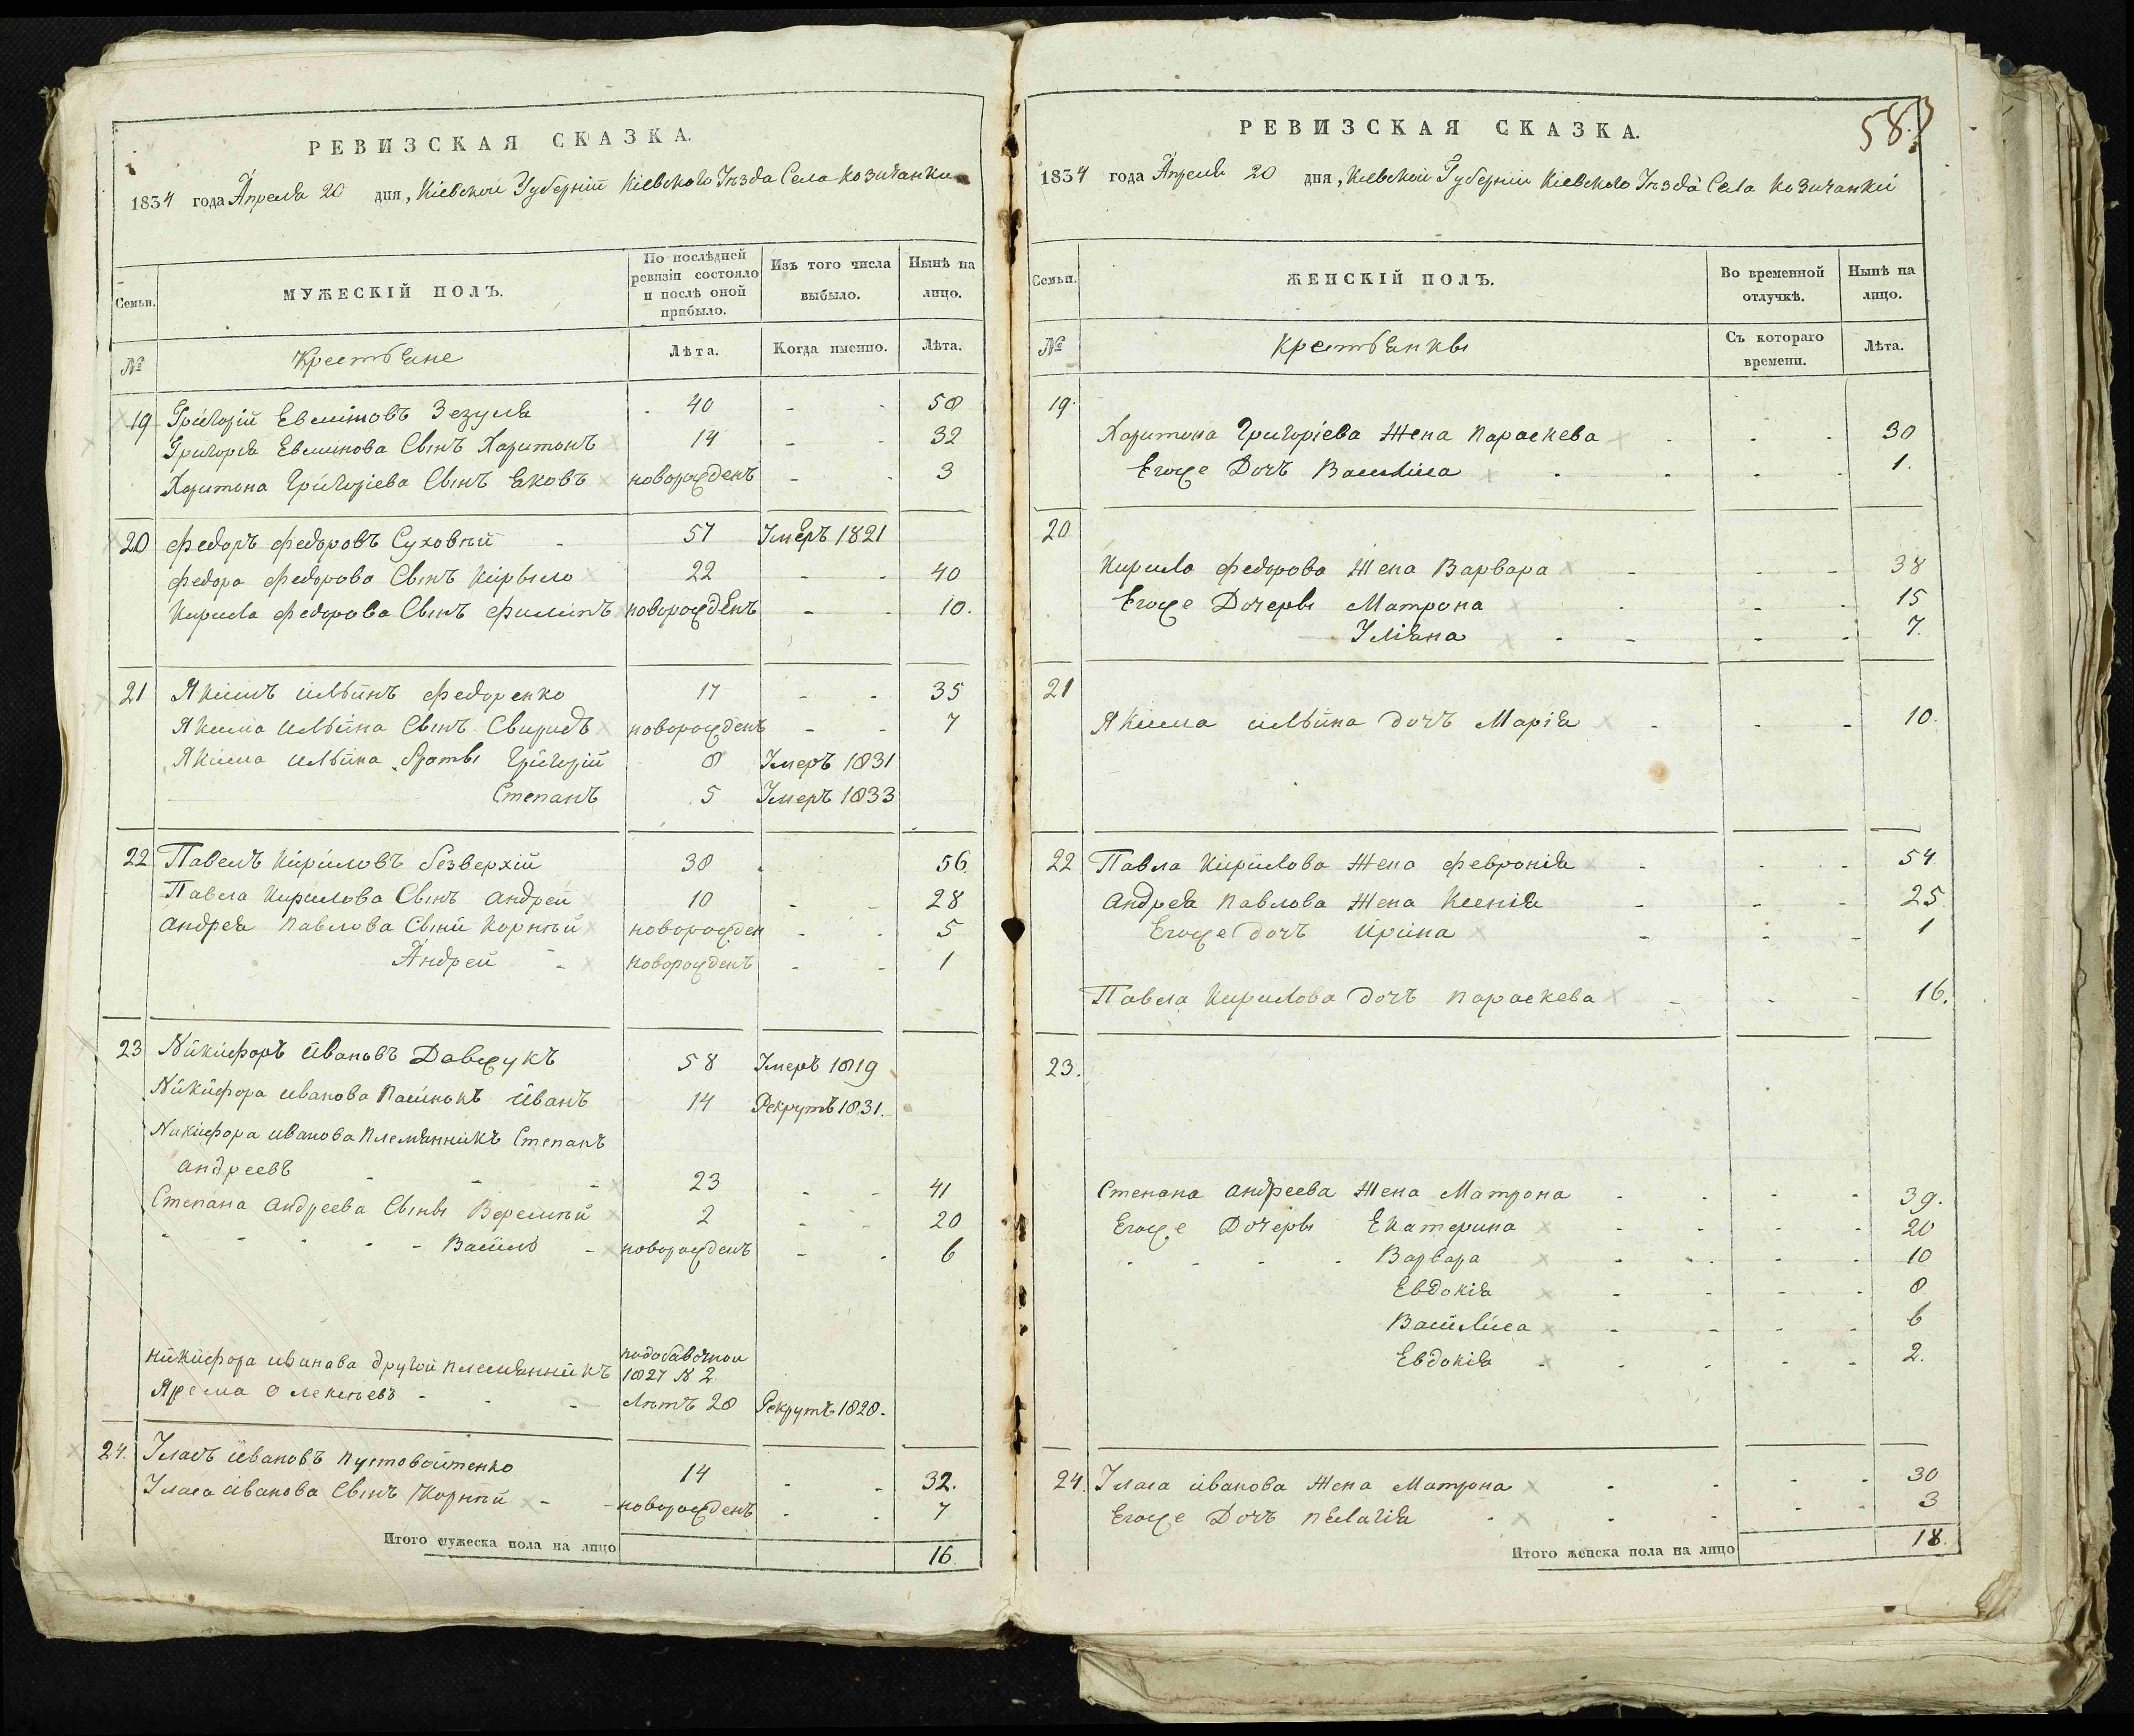 РЕВИЗСКАЯ СКАЗКА.
1834 года Апреля 20 дня, Кіевской Губерніи Кіевского Уѣзда Села Козичанки
Семьи.
МУЖЕСКІЙ ПОЛЪ.
По послѣдней ревизіи состояло и послѣ оной прибыло.
Изъ того числа выбыло.
Нынѣ на лицо.
№
Крестьяне
Лѣта.
Когда именно.
Лѣта.
19 Григорій Евлимовъ Зезуля 40 - - 58
Григорія Евлимова Сынъ Харитонъ 14 - - 32
Харитона Григоріева Сынъ Яковъ новорожденъ - - 3
20 Федоръ Федоровъ Суховѣй - 57 Умеръ 1821
Федора Федорова Сынъ Кирыло 22 - - 40
Кирила Федорова Сынъ Филипъ новорожденъ - - 10.
21 Якимъ Ильинъ Федоренко 17 - - 35
Якима Ильина Сынъ Свиридъ новорожденъ - - 7
Якима Ильина Братьи Григорій 8 Умеръ 1831
Степанъ 5 Умеръ 1833
22 Павелъ Кириловъ Безверхій 38 - 56.
Павла Кирилова Сынъ Андрей 10 - - 28
Андрея Павлова Сыни Корнѣй новорожден - - 5
Андрей - новорожденъ - - 1
23 Никифоръ Ивановъ Довжукъ 58 Умеръ 1819
Никифора Иванова Пасинокъ Иванъ 14 Рекрутъ 1831.
Никифора Иванова Племянникъ Степанъ
Андреевъ - - - 23 - - 41
Степана Андреева Сыны Веремѣй 2 - - 20
- - - - - Василь - новорожденъ - - 6
Никифора Иванова другой племянникъ подобавочной
1827 № 2
Ярема Олексѣевъ - - - Лѣтъ 28 Рекрутъ 1828.
24. Уласъ Ивановъ Пустовойтенко 14 - - 32.
Уласа Иванова Сынъ Корнѣй - новорожденъ - - 7
Итого мужеска пола на лицо 16.
58
РЕВИЗСКАЯ СКАЗКА.
1834 года Апреля 20 дня, Кіевской Губерніи Кіевского Уѣзда Села Козичанки
Семьи.
ЖЕНСКІЙ ПОЛЪ.
Во временной отлучкѣ.
Нынѣ на лицо.
№
Крестьянкы
Съ котораго времени.
Лѣта.
19.
Харитона Григоріева Жена Параскева - - - 30
Егоже Дочъ Василиса - - - - 1.
20
Кирила Федорова Жена Варвара - - - 38
Егоже Дочеры Матрона - - - 15
Уліяна - - - - 7.
21
Якима Ильина дочъ Марія - - - 10.
22 Павла Кирилова Жена Февронія - - - 54.
Андрея Павлова Жена Ксенія - - - 25.
Егоже дочъ Ирина - - - 1
Павла Кирилова дочъ Параскева - - - 16.
23.
Степана Андреева Жена Матрона - - - - 39.
Егоже Дочеры Екатерина - - - - 20
- - - - Варвара - - - - 10
Евдокія - - - - 8
Василиса - - - - 6
Евдокія - - - - 2.
24. Уласа Иванова Жена Матрона - - - - 30
Егоже Дочъ Пелагія - - - - - 3
Итого женска пола на лицо 18.